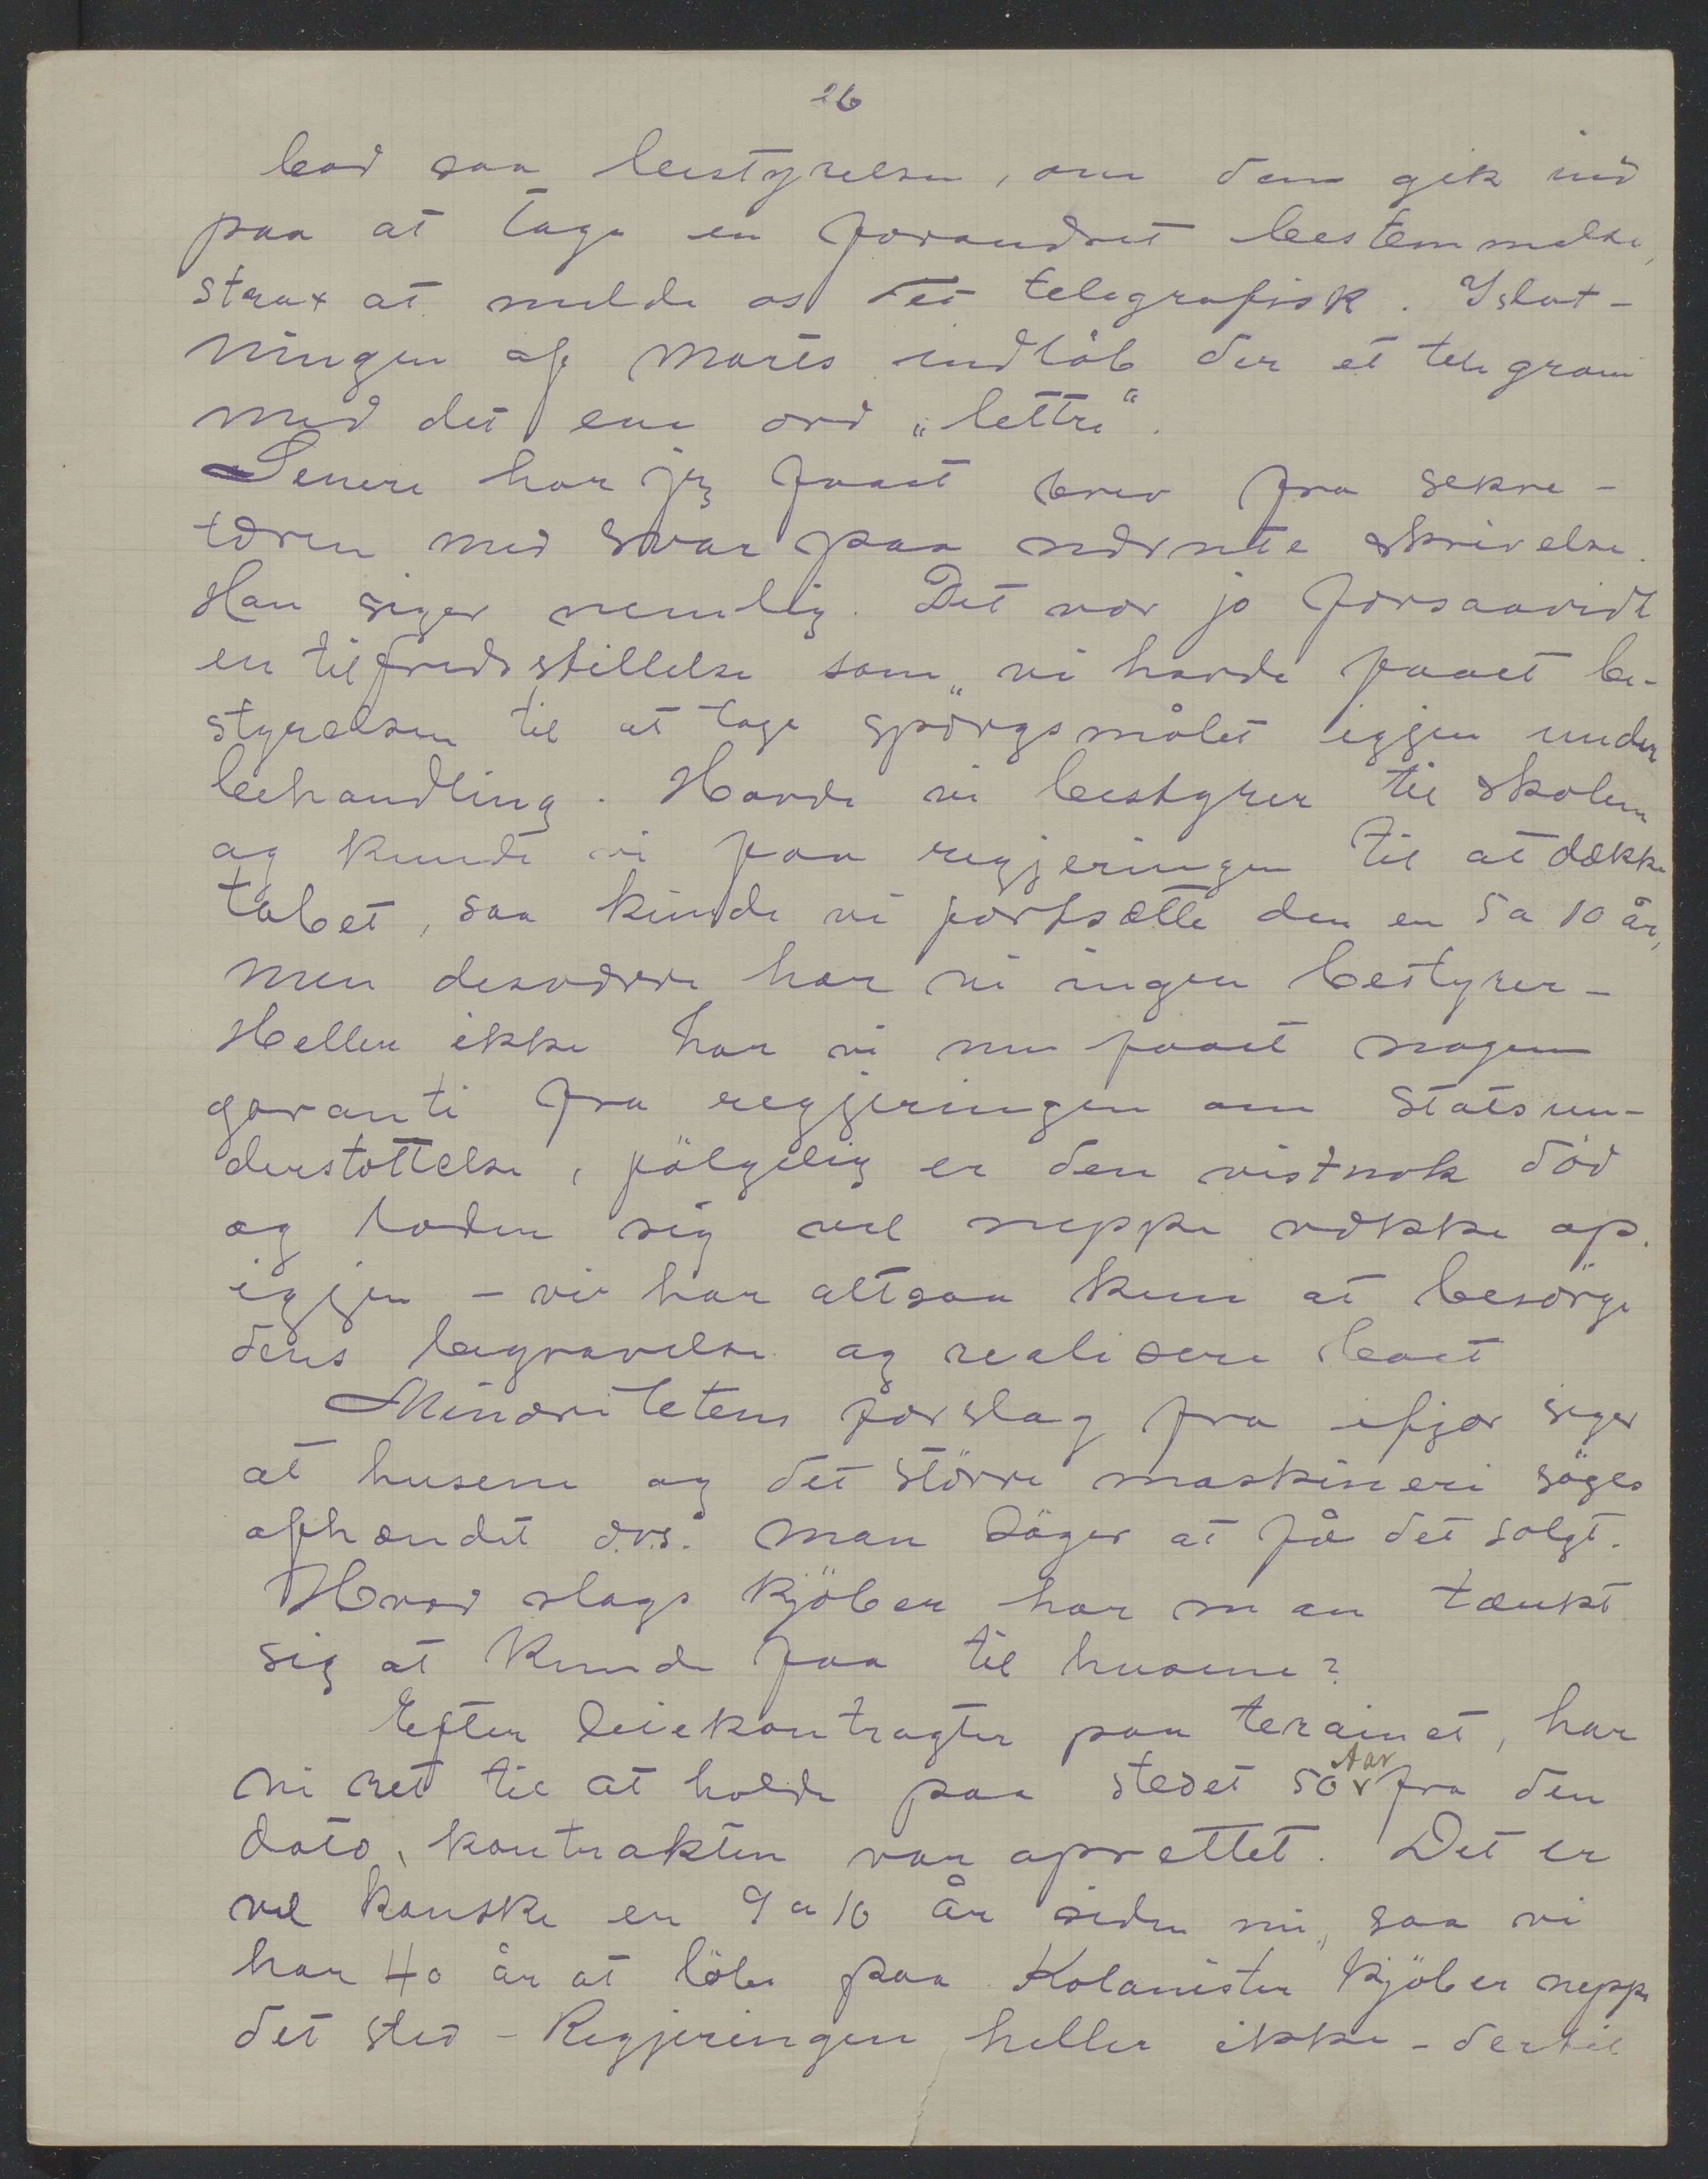 26
bad saa bestyrelsen, om den gik ind
paa at tage en forandret bestemmelse,
strax at melde os det telegrafisk. I slut-
ningen af Marts indlöb der et telegram
med det ene ord „lettre“.
Senere har jeg faaet brev fra sekre-
tæren med svar paa nævnte skrivelse.
Han siger nemlig. Det var jo forsaavidt
en tilfredsstillelse som „vi havde faaet be-
styrelsen til at tage spörgsmålet igjen under
behandling. Havde vi bestyrer til skolen
og kunde vi faa regjeringen til at dække
tabet, saa kunde vi fortsætte den en 5 a 10 år,
men desværre har vi ingen bestyrer -
Heller ikke har vi nu faaet nogen
garanti fra regjeringen om Statsun-
derstöttelse, fölgelig er den vistnok död
og lader sig vel neppe vække op
igjen - vi har altsaa kun at besörge
dens begravelse og realisere boet
Minoritetens forslag fra ifjor siger
at husene og det större maskineri söges
afhændet d.v.s. man söger at få det solgt.
Hvad slags kjöber har man tænkt
sig at kunde faa til husene?
Efter leiekontragter paa terainet, har
vi ret til at holde paa stedet 50 Aar fra den
dato, kontrakten var oprettet. Det er
vel kanske en 9 a 10 år siden nu, saa vi
har 40 år at löbe paa. Kolanister kjöber neppe
det sted - Regjeringen heller ikke - dertil